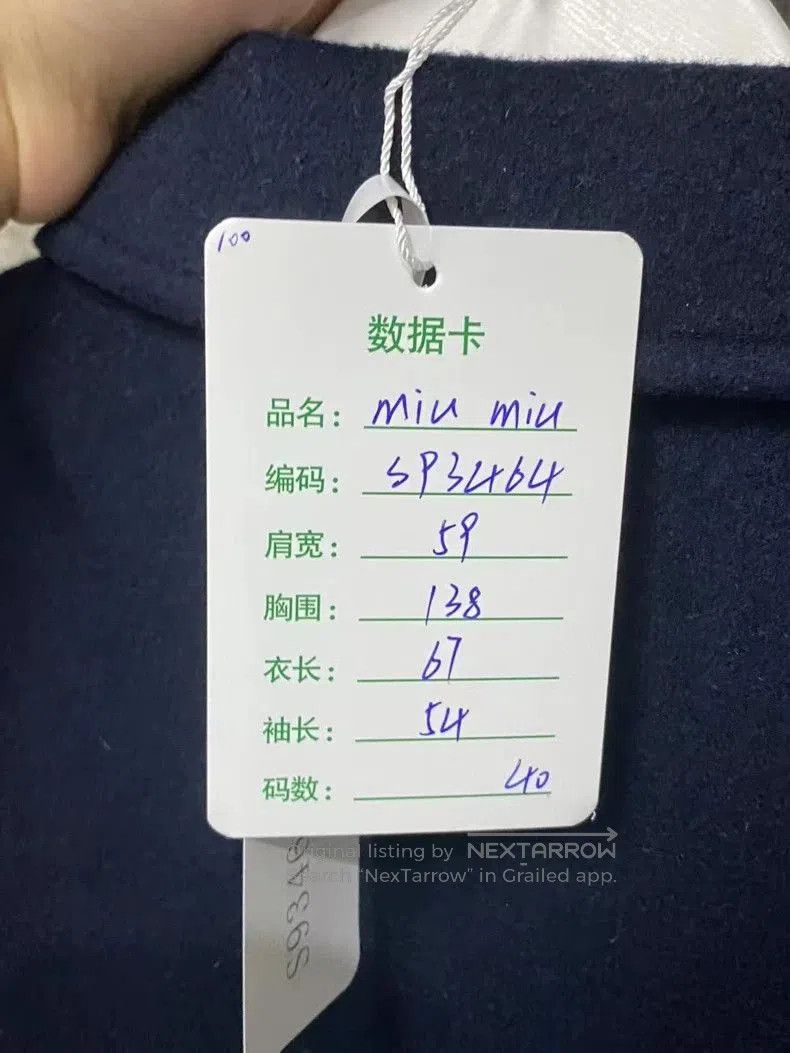 100
数据卡
品名: miu miu
编码: S93464
肩宽: 59
胸围: 138
衣长: 67
袖长: 54
码数: 40
listing by NEXTARROW
"NexTarrow" in Grailed app.
S9346